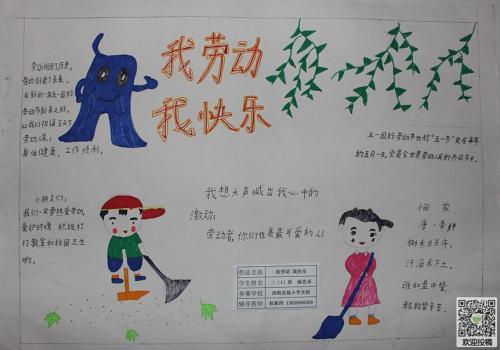 我劳动
我快乐
劳动创造历史,
劳动创造未来。
劳动节到来之际,
让我们祝福全天下
劳动人民:
身体健康、工作顺利。
五一国际劳动节也称"五一节"定在每年
的五月一日。它是全世界劳动人民的共同节日。
小朋友们:
我们一定要热爱劳动,
爱护环境 积极打
扫教室和校园卫生
哟。
我想大声喊出我心中的
激动:
劳动者,你们也是最可爱的人!
悯 农
唐·李绅
锄禾日当午,
汗滴禾下土。
谁知盘中餐
粒粒皆辛苦。
作品名称 我劳动 我快乐
学生姓名 二(1)班
参赛学校
辅导教师
欢迎投稿